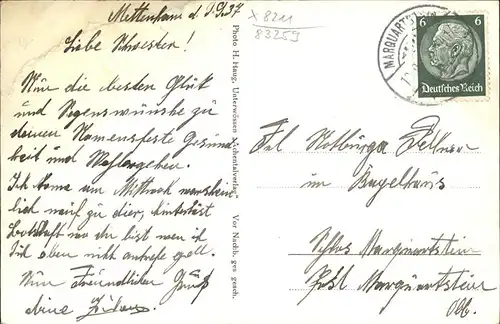 Mettenham d. 9.9.37
x 8211
83259
Liebe Schwester!
Nun die besten Glück
und Segenswünsche zu
deinem Namensfeste Gesund
heit und Wohlergehen.
Ich komme am Mittwoch
mich zu dir, hinterläst
Botschaft wo du bist wen
ich oben nicht antrefe gell.
Nun Freundlichen Gruß
deine
Photo H. Haug, Unterwössen Achentalverlag Vor Nachb. ges. gesch.
MARQUARTSTEIN
6 6
Deutsches Reich
Frl Notburga
im Bagelhaus
Schlos Marquartstein
Post Marquartstein
Obb.